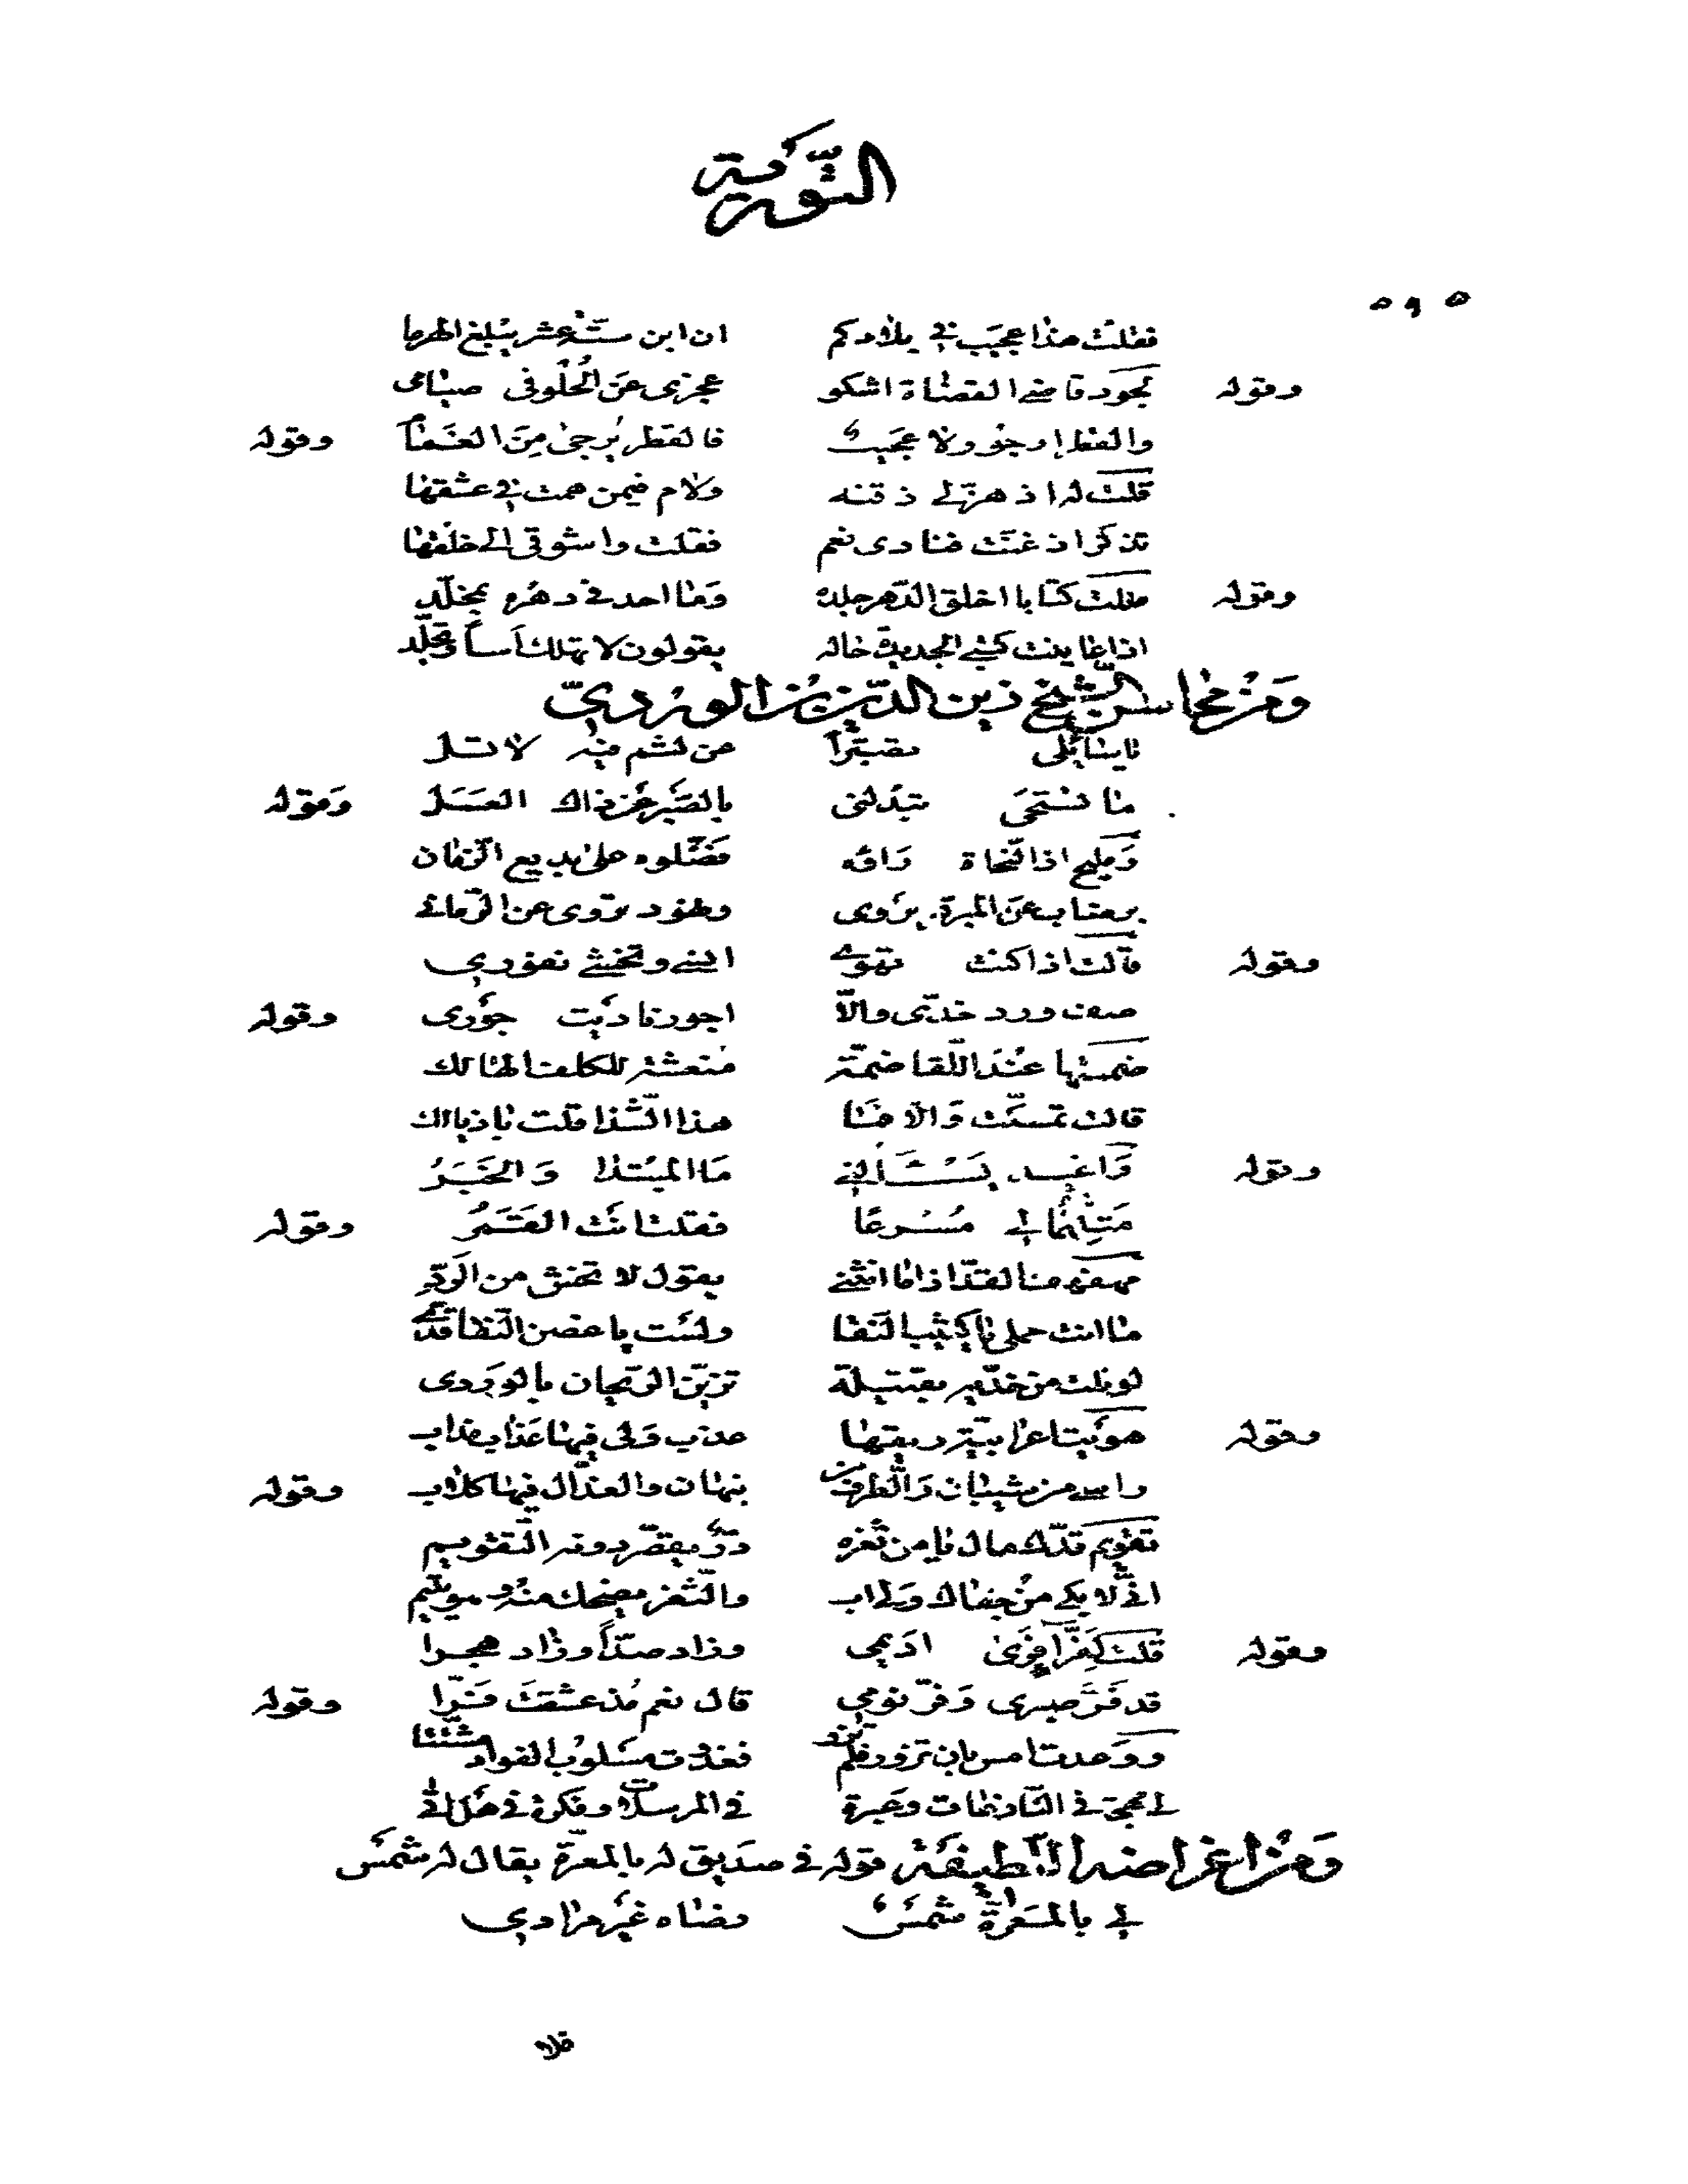 التورية
٥٩٥
فقلت هذا عجيب في بلادكم ان ابن ستة عشر يبلغ الهرما
وقوله بجود قاضي القضاة اشكو عجزي عن الحلو في صيامي
والقطر ارجو ولا عجيب فالقطر يرجى من الغمام وقوله
قلت له اذ هز لي ذقنه ولام فيمن همت في عشقها
تذكر اذ غنت فنادى نعم فقلت واشوقي الى خلفها
وقوله ملكت كتابا اخلق الدهر جلده وما احد في دهره بمخلد
اذا عاينت كتبي الجديدة حاله يقولون لا تهلك اسا وتجلد
ومن محاسن الشيخ زين الدين بن الوردي
ياسائلي تصبرا عن لثم فيه لا تسل
ما تستحي تبدلني بالصبر عن ذاك العسل وقوله
ومليح اذا النحاة راوه فضلوه على بديع الزمان
برضاب عن المبرد يروى ونهود تروى عن الرماني
وقوله قالت اذا كنت تهوى انسي وتخشى نفوري
صف ورد خدي والا اجور ناديت جوري وقوله
ضممتها عند اللقا ضمة منعشة للكلف الهالك
قالت تمسكت والا فما هذا الشذا قلت باذيالك
وقوله واغيد يسألني ما المبتدا والخبر
مثلهما لي مسرعا فقلت انت القمر وقوله
مهفهف القد اذا ما انثنى يقول لا تخش من الرد
ما انت حملي يا كثيب النقا ولست يا غصن النقا قدي
لو نلت من خديه تقبيلة تزين الريحان بالورد
وقوله هويت اعرابية ريقها عذب ولي فيها عذاب مذاب
راسي من شيبان والطرف من نبهان والعذال فيها كلاب وقوله
تقويم قدك مال يا من ثغره در يقصر دونه التقويم
اني لابكي من جفاك ولي اب والثغر يضحك منك وهو يتيم
وقوله قلت كفرا فرى اديمي وزاد صدا وزاد هجرا
قد فر صبري وفر نومي قال نعم مذ عشقت فرا وقوله
ووعدت امس بان تزور فلم تزر فغدوت مسلوب الفواد مشتتا
لي مهجة في النازعات وعبرة في المرسلات وفكرة في هل اتى
ومن اغراضه اللطيفة قوله في صديق له بالمعرة يقال له شمس
لي بالمعرة شمس رضاه غير مرادي
قلا